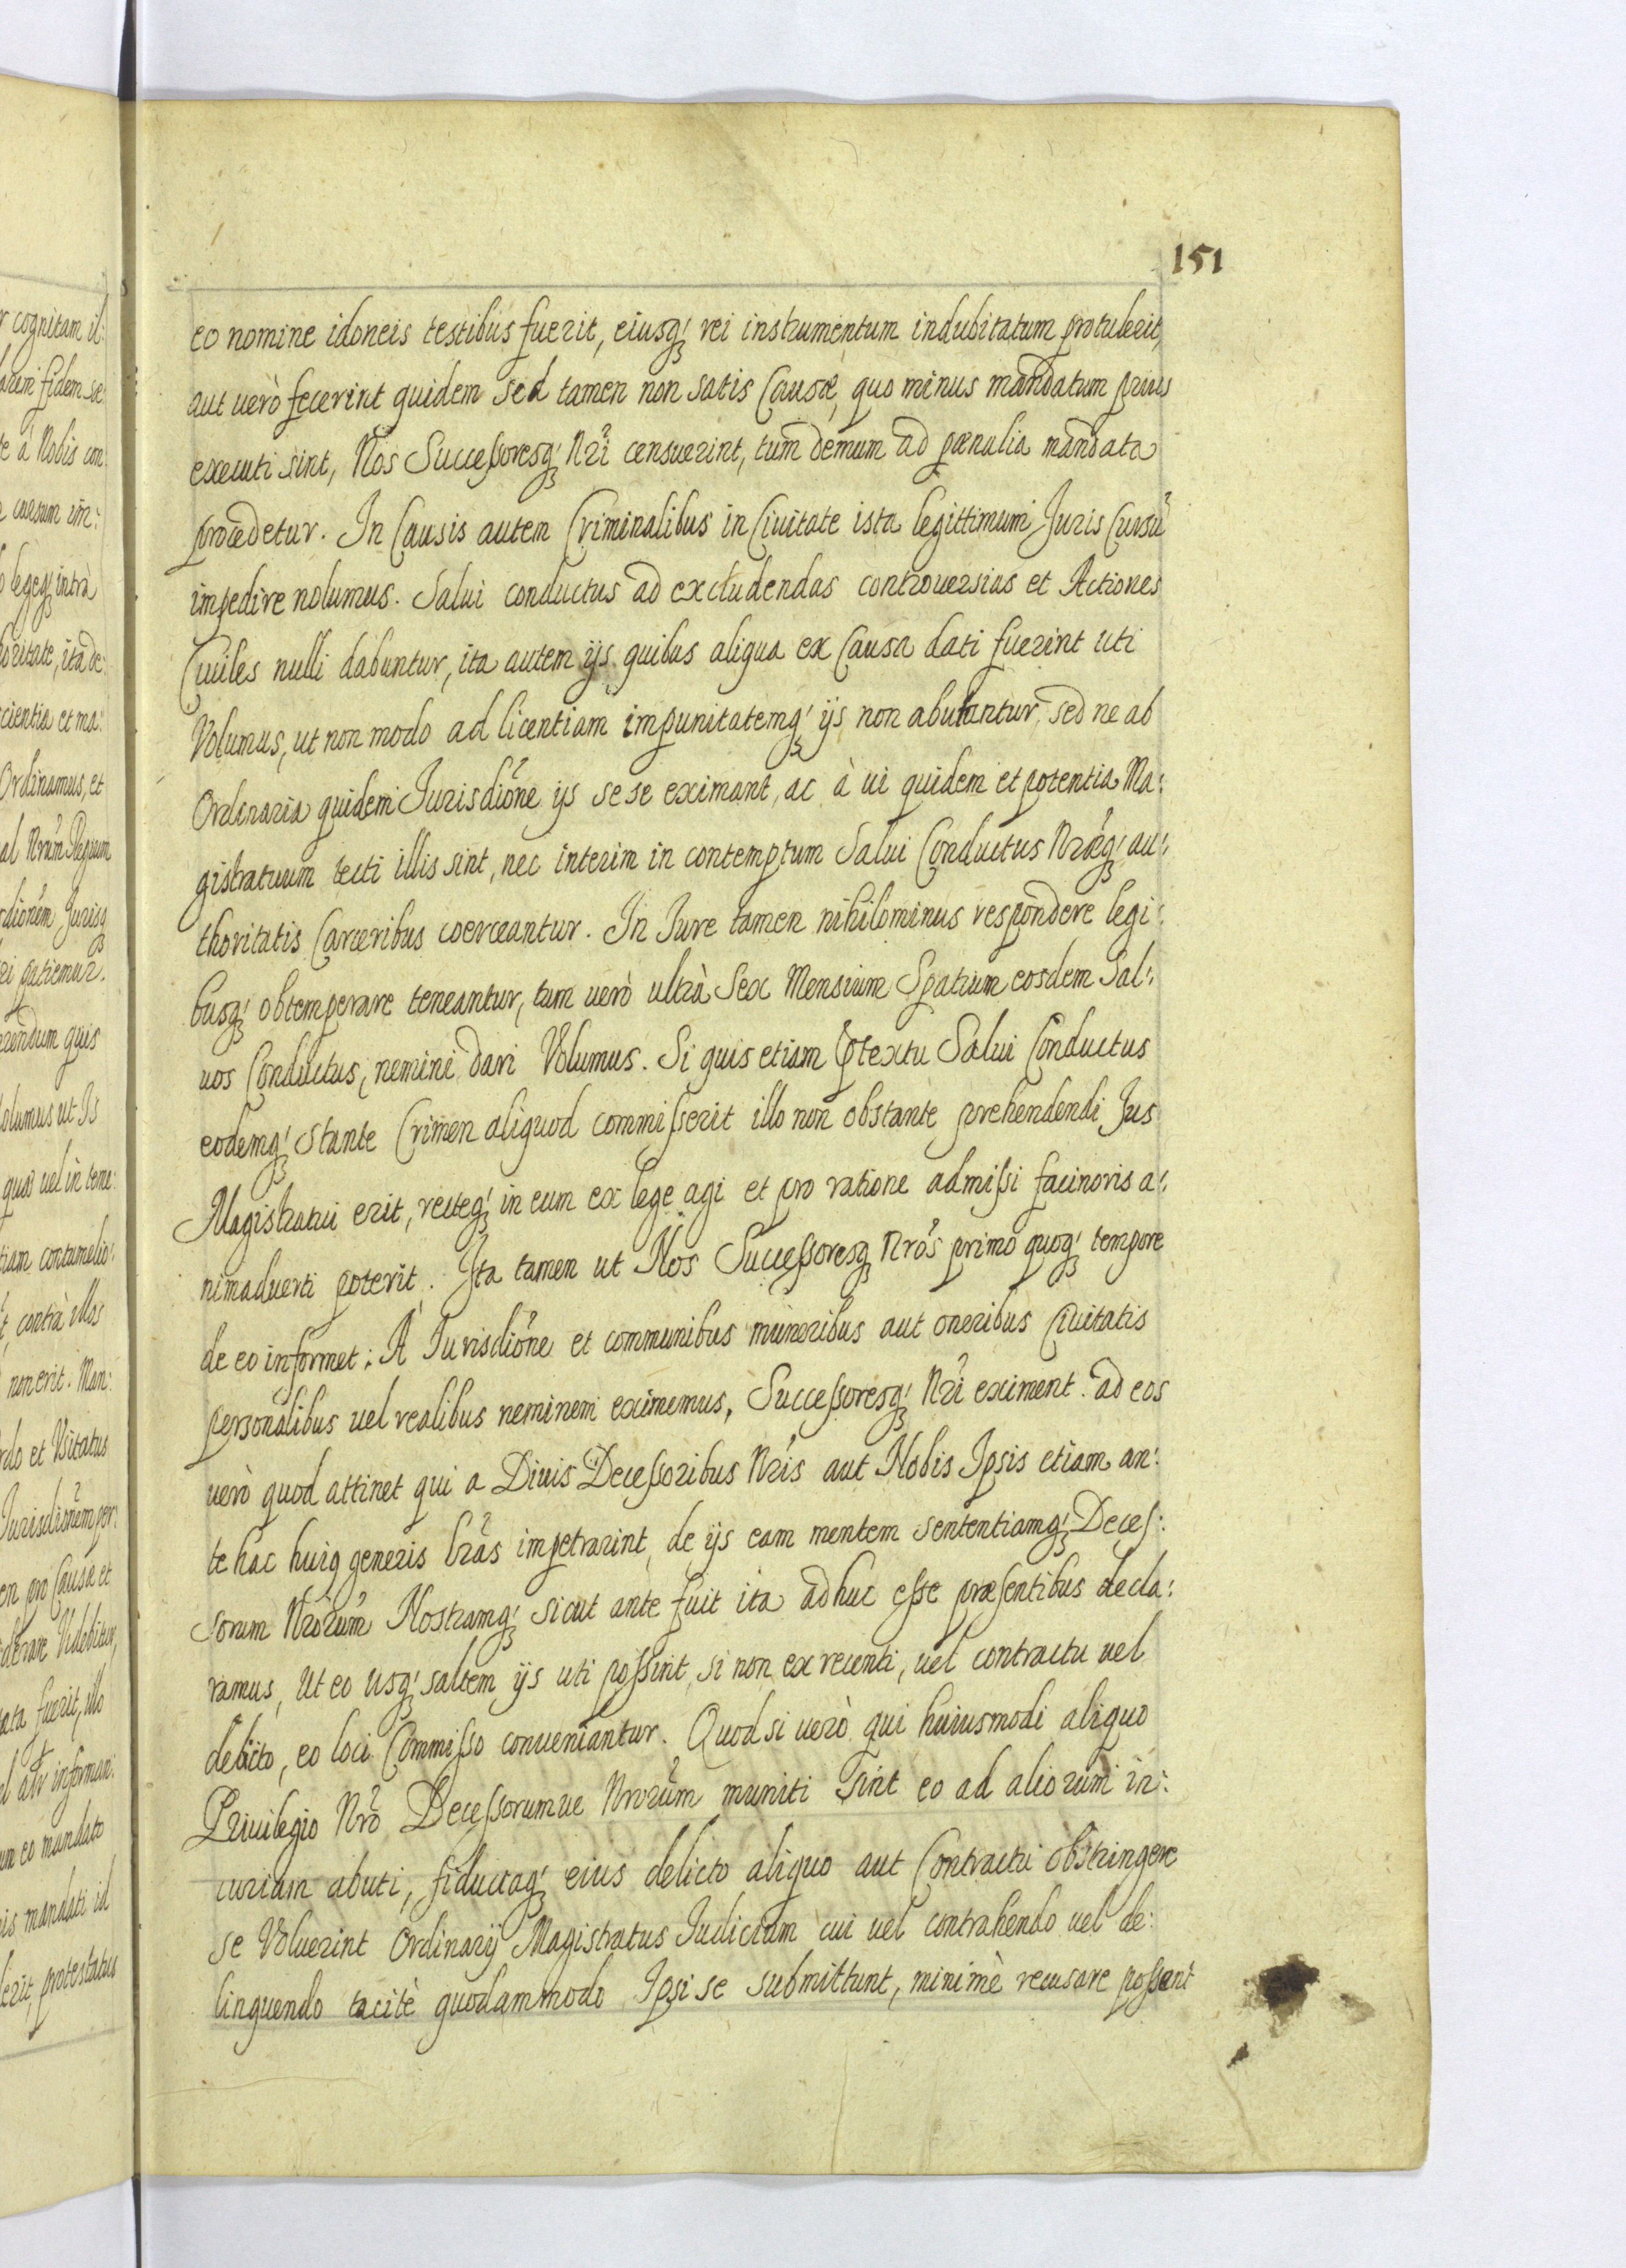 151
eo nomine idoneis testibus fuerit, eiusq́ꝫ rei instrumentum indubitatum protulerit,
aut uerò fecerint quidem sed tamen non satis Causæ, quo minus mandatum prius
executi sint, Nos Successoresq́ꝫ Nr̃i censuerint, tum demum ad pœnalia mandata
procedetur. In Causis autem Criminalibus in Ciuitate ista legittimum Juris Cursũ
impedire nolumus. Salui conductus ad excludendas controuersias et Actiones
Ciuiles nulli dabuntur, ita autem ijs quibus aliqua ex Causa dati fuerint uti
Volumus, ut non modo ad licentiam impunitatemq́ꝫ ijs non abutantur, sed ne ab
Ordinaria quidem Jurisdiõne ijs se se eximant, ac à ui quidem et potentia Ma:
gistratuum tecti illis sint, nec interim in contemptum Salui Conductus Nræ̃q́ꝫ au:
thoritatis Carceribus coerceantur. In Jure tamen nihilominus respondere legi:
busq́ꝫ obtemperare teneantur, tum uerò ultrà Sex Mensium Spatium eosdem Sal:
uos Conductus, nemini dari Volumus. Si quis etiam ꝓtextu Salui Conductus
eodemq́ꝫ stante Crimen aliquod commisserit illo non obstante prehendendi Jus
Magistratui erit, recteq́ꝫ in eum ex lege agi et pro ratione admissi facinoris a:
nimaduerti poterit. Ita tamen ut Nos Successoresqꝫ Nrõs primo quoq́ꝫ tempore
de eo informet: A Jurisdiõne et communibus muneribus aut oneribus Ciuitatis
personalibus uel realibus neminem eximemus, Successoresq́ꝫ Nr̃i eximent. ad eos
uerò quod attinet qui a Diuis Decessoribus Nr̃is aut Nobis Ipsis etiam an:
te hac huiq generis lr̃as impetrarint, de ijs eam mentem sententiamq́ꝫ Deces:
sorum Nrõrum Nostramq́ꝫ sicut ante fuit ita adhuc esse præsentibus decla:
ramus, Ut eo usq́ꝫ saltem ijs uti possint, si non ex recenti, uel contractu uel
delicto, eo loci Commisso conueniantur. Quod si uerò qui huiusmodi aliquo
Priuilegio Nrõ Decessorumue Nrorũm muniti sint eo ad aliorum in:
curiam abuti, fiduciaq́ꝫ eius delicto aliquo aut Contractu obstringere
se Voluerint Ordinarij Magistratus Judicium cui uel contrahendo uel de:
linquendo tacitè quodammodo Ipsi se submittunt, minimè recusare possent